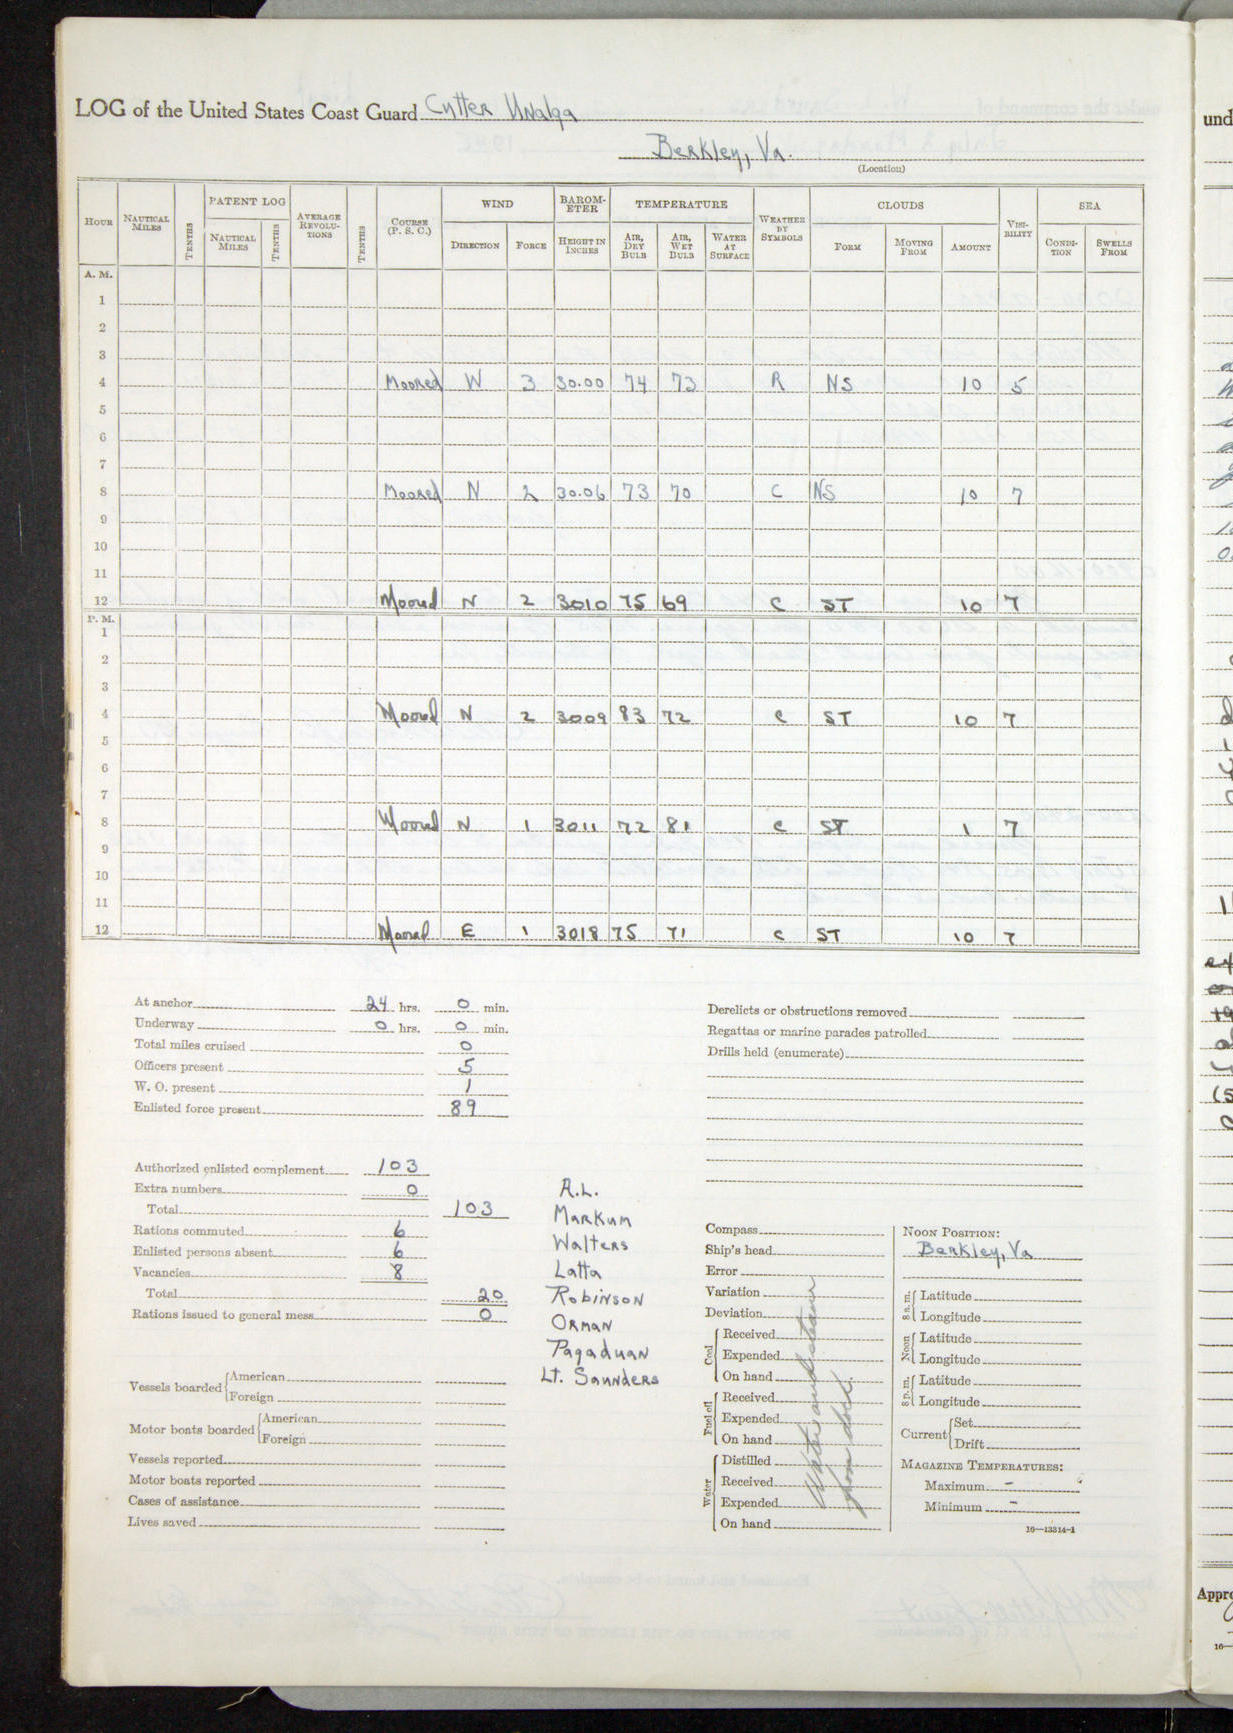 LOG of the United States Coast Guard Cutter Unalga
Berkley, Va.
(Location)
HOUR NAUTICAL MILES TENTHS PATENT LOG NAUTICAL MILES TENTHS AVERAGE REVOLUTIONS TENTHS COURSE (P. S. C.) WIND DIRECTION FORCE BAROMETER HEIGHT IN INCHES TEMPERATURE AIR, DRY BULB AIR, WET BULB WATER AT SURFACE WEATHER BY SYMBOLS CLOUDS FORM MOVING FROM AMOUNT VISIBILITY SEA CONDITION SWELLS FROM
A. M.
1
2
3
4 Moored W 3 30.00 74 73 R NS 10 5
5
6
7
8 Moored N 2 30.06 73 70 C NS 10 7
9
10
11
12 Moored N 2 3010 75 69 C ST 10 7
P. M.
1
2
3
4 Moored N 2 3009 83 72 C ST 10 7
5
6
7
8 Moored N 1 3011 72 81 C ST 1 7
9
10
11
12 Moored E 1 3018 75 71 C ST 10 7
At anchor 24 hrs. 0 min.
Underway 0 hrs. 0 min.
Total miles cruised 0
Officers present 5
W. O. present 1
Enlisted force present 89
Authorized enlisted complement 103
Extra numbers 0
Total 103
Rations commuted 6
Enlisted persons absent 6
Vacancies 8
Total 20
Rations issued to general mess 0
Vessels boarded American
Foreign
Motor boats boarded American
Foreign
Vessels reported
Motor boats reported
Cases of assistance
Lives saved
A.L.
Markum
Walters
Latta
Robinson
Orman
Pagaduan
Lt. Saunders
Derelicts or obstructions removed
Regattas or marine parades patrolled
Drills held (enumerate)
Compass
Ship's head
Error
Variation
Deviation
Coal Received
Expended
On hand
Fuel oil Received
Expended
On hand
Water Distilled
Received
Expended
On hand
Water and steam
from dock.
NOON POSITION:
Berkley, Va
8 a. m. Latitude
Longitude
Noon Latitude
Longitude
8 p. m. Latitude
Longitude
Current Set
Drift
MAGAZINE TEMPERATURES:
Maximum -
Minimum -
16—13314-1
und
Appro
16—